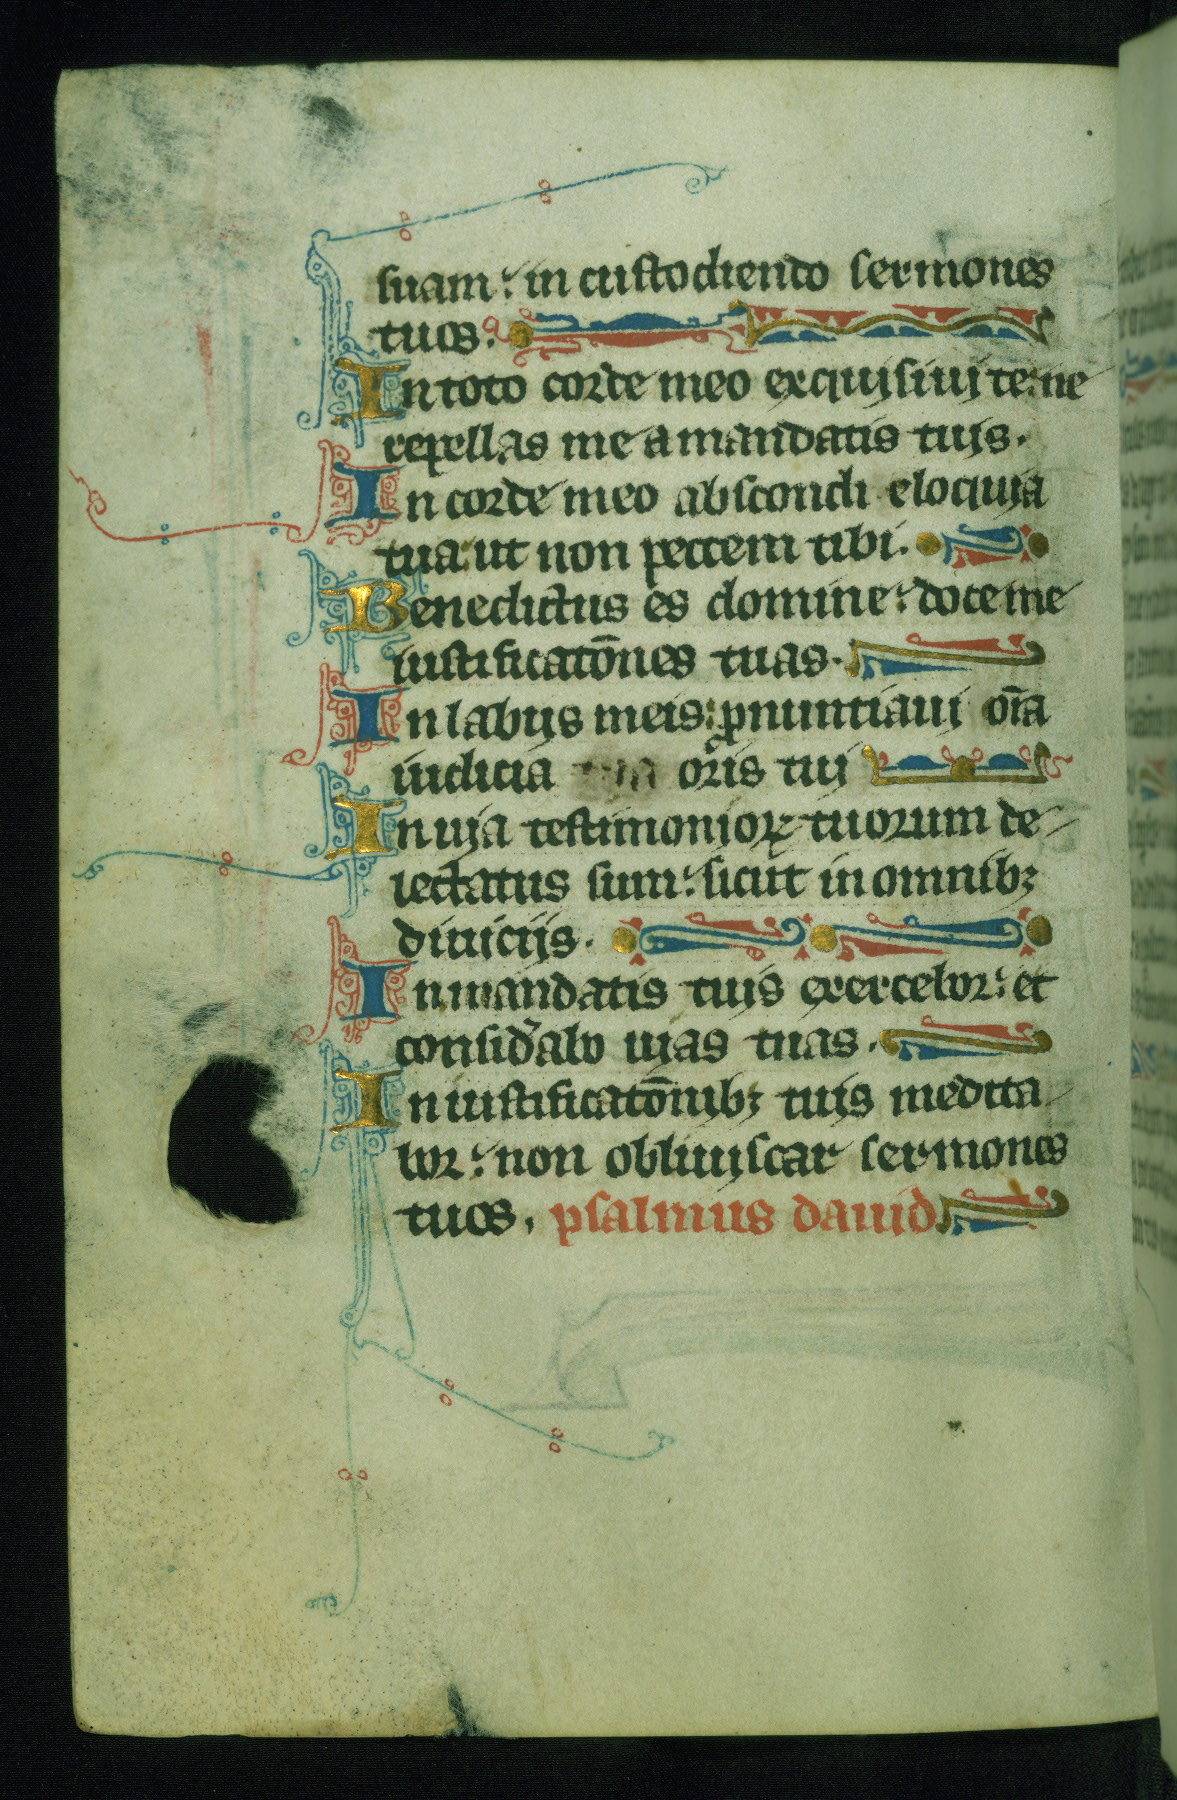 suam: in custodiendo sermones
tuos.
In toto corde meo exquisiui te: ne
repellas me a mandatis tuis.
In corde meo abscondi eloquia
tua: ut non peccem tibi.
Benedictus es domine: doce me
iustificatōnes tuas.
In labijs meis: pnuntiaui oīa
iudicia oris tui
In uia testimonioꝝ tuorum de
lectatus sum: sicut in omnibꝫ
diuicijs.
In mandatis tuis exercebor: et
consid̛abo uias tuas.
In iustificatōnibꝫ tuis medita
bor: non obliuiscar sermones
tuos. psalmus dauid